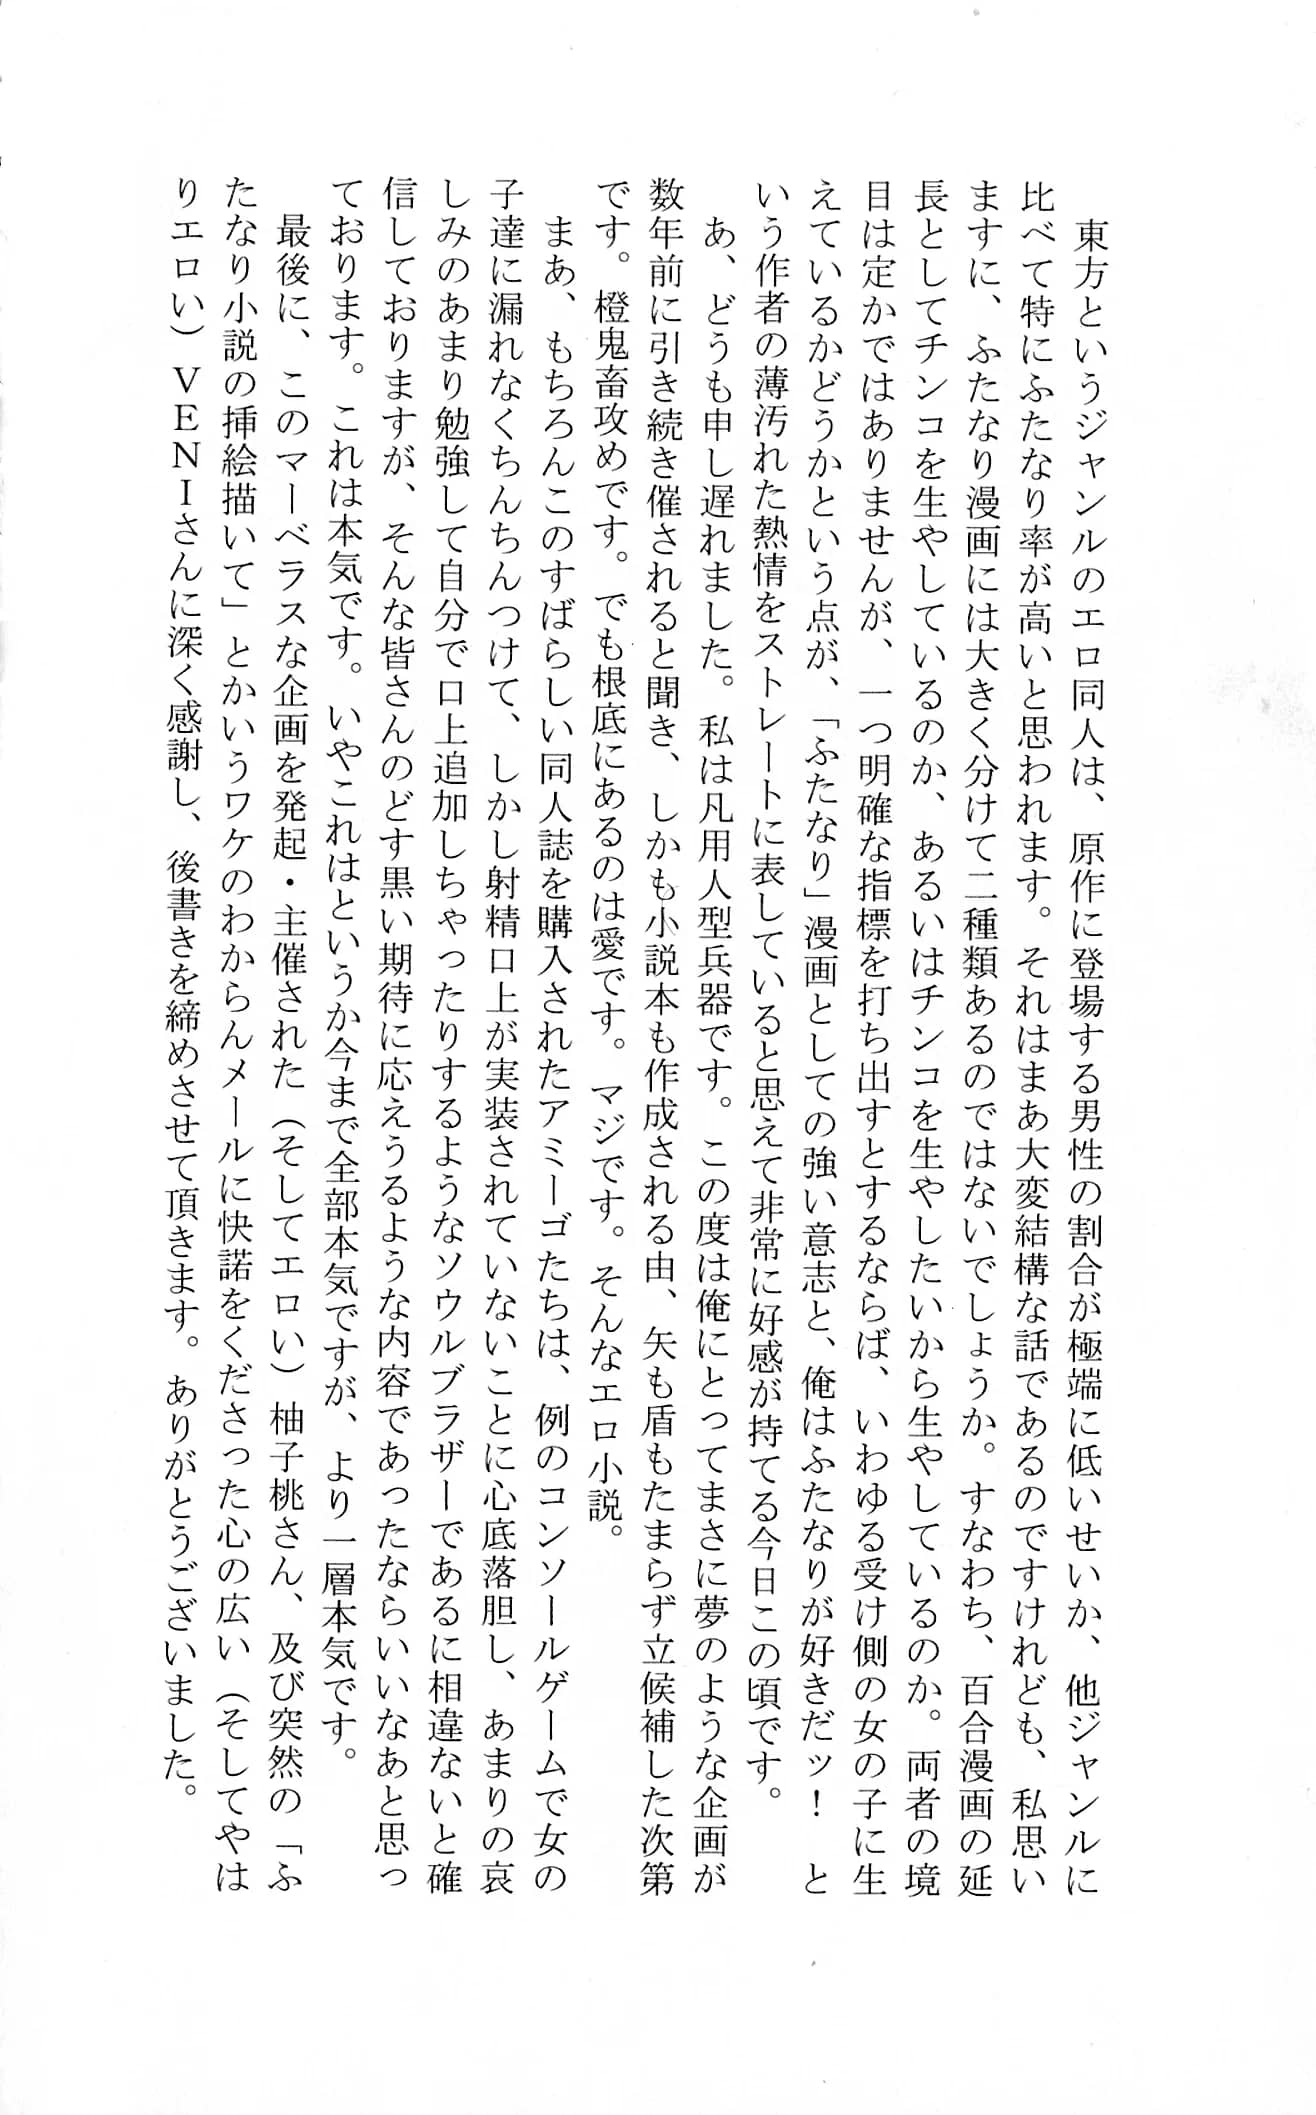 東方というジャンルのエロ同人は、原作に登場する男性の割合が極端に低いせいか、他ジャンルに
比べて特にふたなり率が高いと思われます。それはまあ大変結構な話であるのですけれども、私思い
ますに、ふたなり漫画には大きく分けて二種類あるのではないでしょうか。すなわち、百合漫画の延
長としてチンコを生やしているのか、あるいはチンコを生やしたいから生やしているのか。両者の境
目は定かではありませんが、一つ明確な指標を打ち出すとするならば、いわゆる受け側の女の子に生
えているかどうかという点が、「ふたなり」漫画としての強い意志と、俺はふたなりが好きだッ！　と
いう作者の薄汚れた熱情をストレートに表していると思えて非常に好感が持てる今日この頃です。
　あ、どうも申し遅れました。私は凡用人型兵器です。この度は俺にとってまさに夢のような企画が
数年前に引き続き催されると聞き、しかも小説本も作成される由、矢も盾もたまらず立候補した次第
です。橙鬼畜攻めです。でも根底にあるのは愛です。マジです。そんなエロ小説。
　まあ、もちろんこのすばらしい同人誌を購入されたアミーゴたちは、例のコンソールゲームで女の
子達に漏れなくちんちんつけて、しかし射精口上が実装されていないことに心底落胆し、あまりの哀
しみのあまり勉強して自分で口上追加しちゃったりするようなソウルブラザーであるに相違ないと確
信しておりますが、そんな皆さんのどす黒い期待に応えうるような内容であったならいいなあと思っ
ております。これは本気です。いやこれはというか今まで全部本気ですが、より一層本気です。
　最後に、このマーベラスな企画を発起・主催された（そしてエロい）柚子桃さん、及び突然の「ふ
たなり小説の挿絵描いて」とかいうワケのわからんメールに快諾をくださった心の広い（そしてやは
りエロい）ＶＥＮＩさんに深く感謝し、後書きを締めさせて頂きます。ありがとうございました。